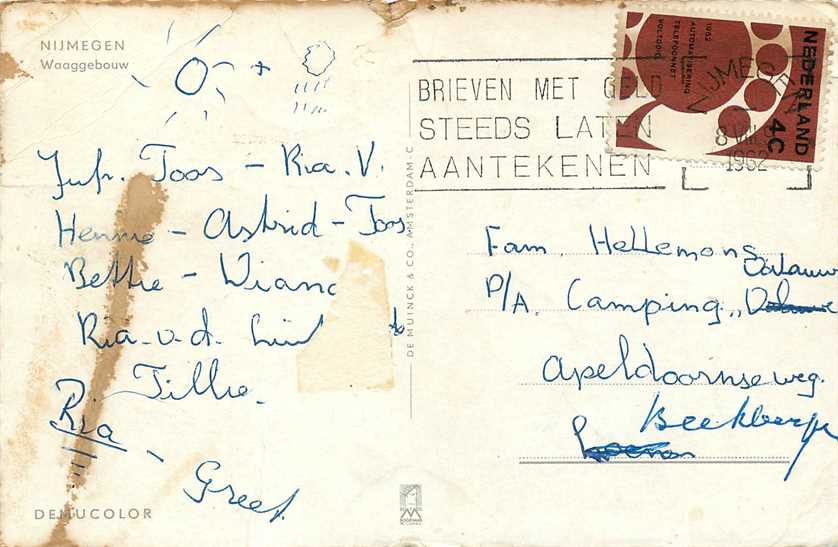 NIJMEGEN
Waaggebouw
Jufr. Toos - Ria. V.
Hennie - Astrid - Toos
Bettie - Diana
Ria. v. d.
Tillie.
Ria - Greet.
DEMUCOLOR
DE MUINCK & CO., AMSTERDAM-C
BRIEVEN MET GELD
STEEDS LATEN
AANTEKENEN
NIJMEGEN
1962
NEDERLAND
4c
1962
AUTOMATISERING
TELEFOONNET
VOLTOOID
Fam. Hellemons
P/A. Camping "Dalauw
Apeldoornseweg.
Beekberge